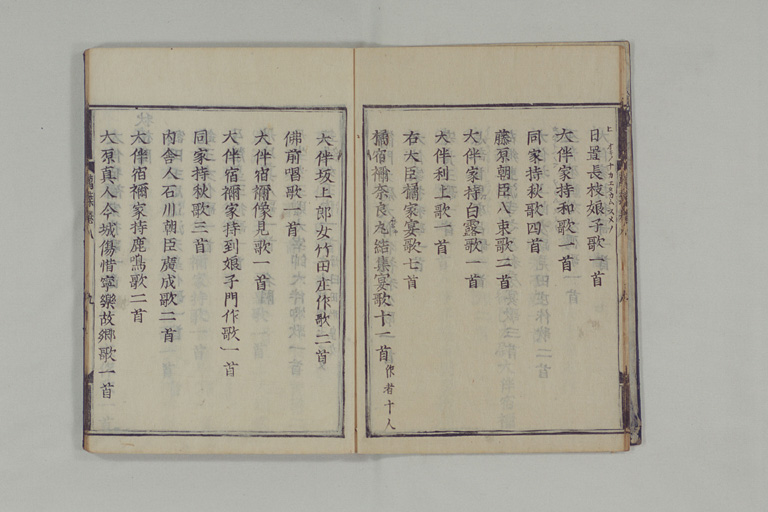 日置長枝娘子歌一首
大伴家持和歌一首
同家持秋歌四首
藤原朝臣八束歌二首
大伴家持白露歌一首
大伴利上歌一首
右大臣橘家宴歌七首
橘宿祢奈良丸結集宴歌十一首 作者十人
大伴坂上郎女竹田庄作歌二首
佛前唱歌一首
大伴宿祢像見歌一首
大伴宿祢家持到娘子門作歌一首
同家持秋歌三首
内舎人石川朝臣廣成歌二首
大伴宿祢家持鹿鳴歌二首
大原真人今城傷惜寧樂故郷歌一首
萬葉集八
九